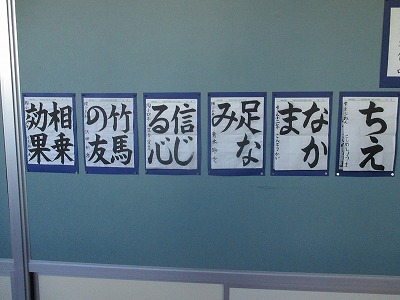 ちえ
なか
ま
足な
み
信じ
る心
竹馬
の友
相乗
効果